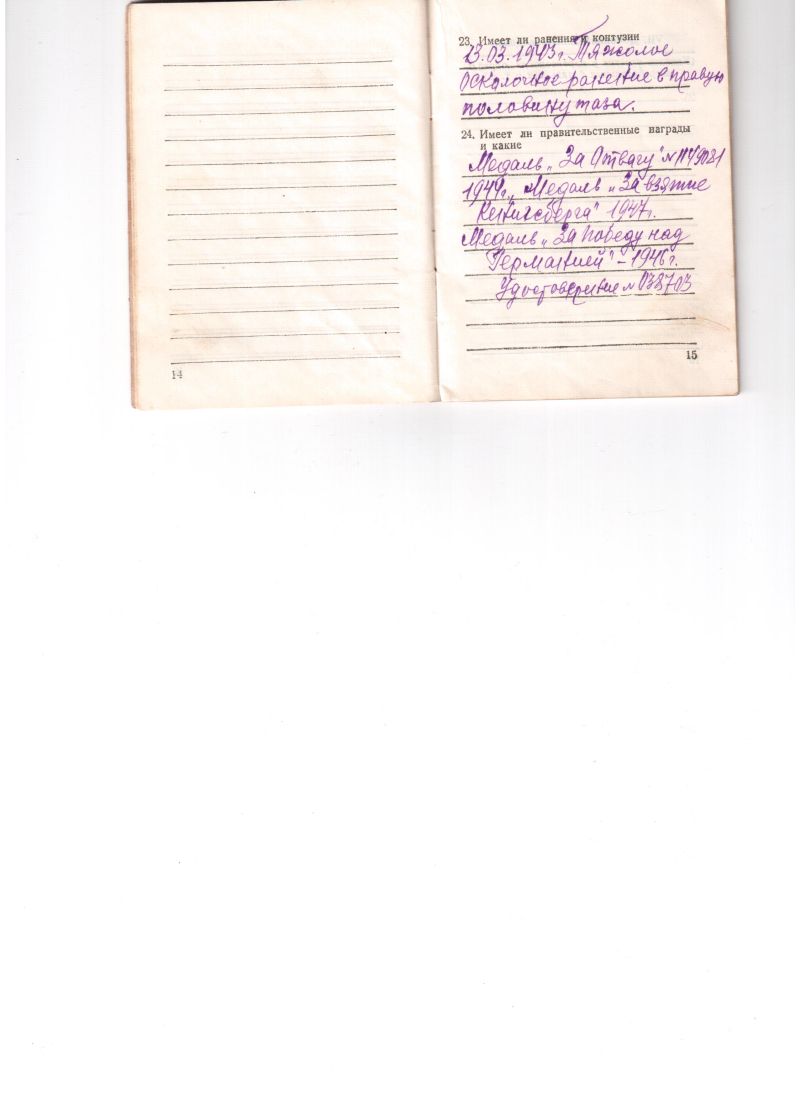 23. Имеет ли ранения и контузии
23.03.1943г. Тяжолое
осколочное ранение в правую
половину таза.
24. Имеет ли правительственные награды
и какие
Медаль „За Отвагу"
1944г., Медаль „За взятие
Кенигсберга" 1947г.
Медаль „За Победу над
Германией" – 1946г.
Удостоверение № 038703
14
15